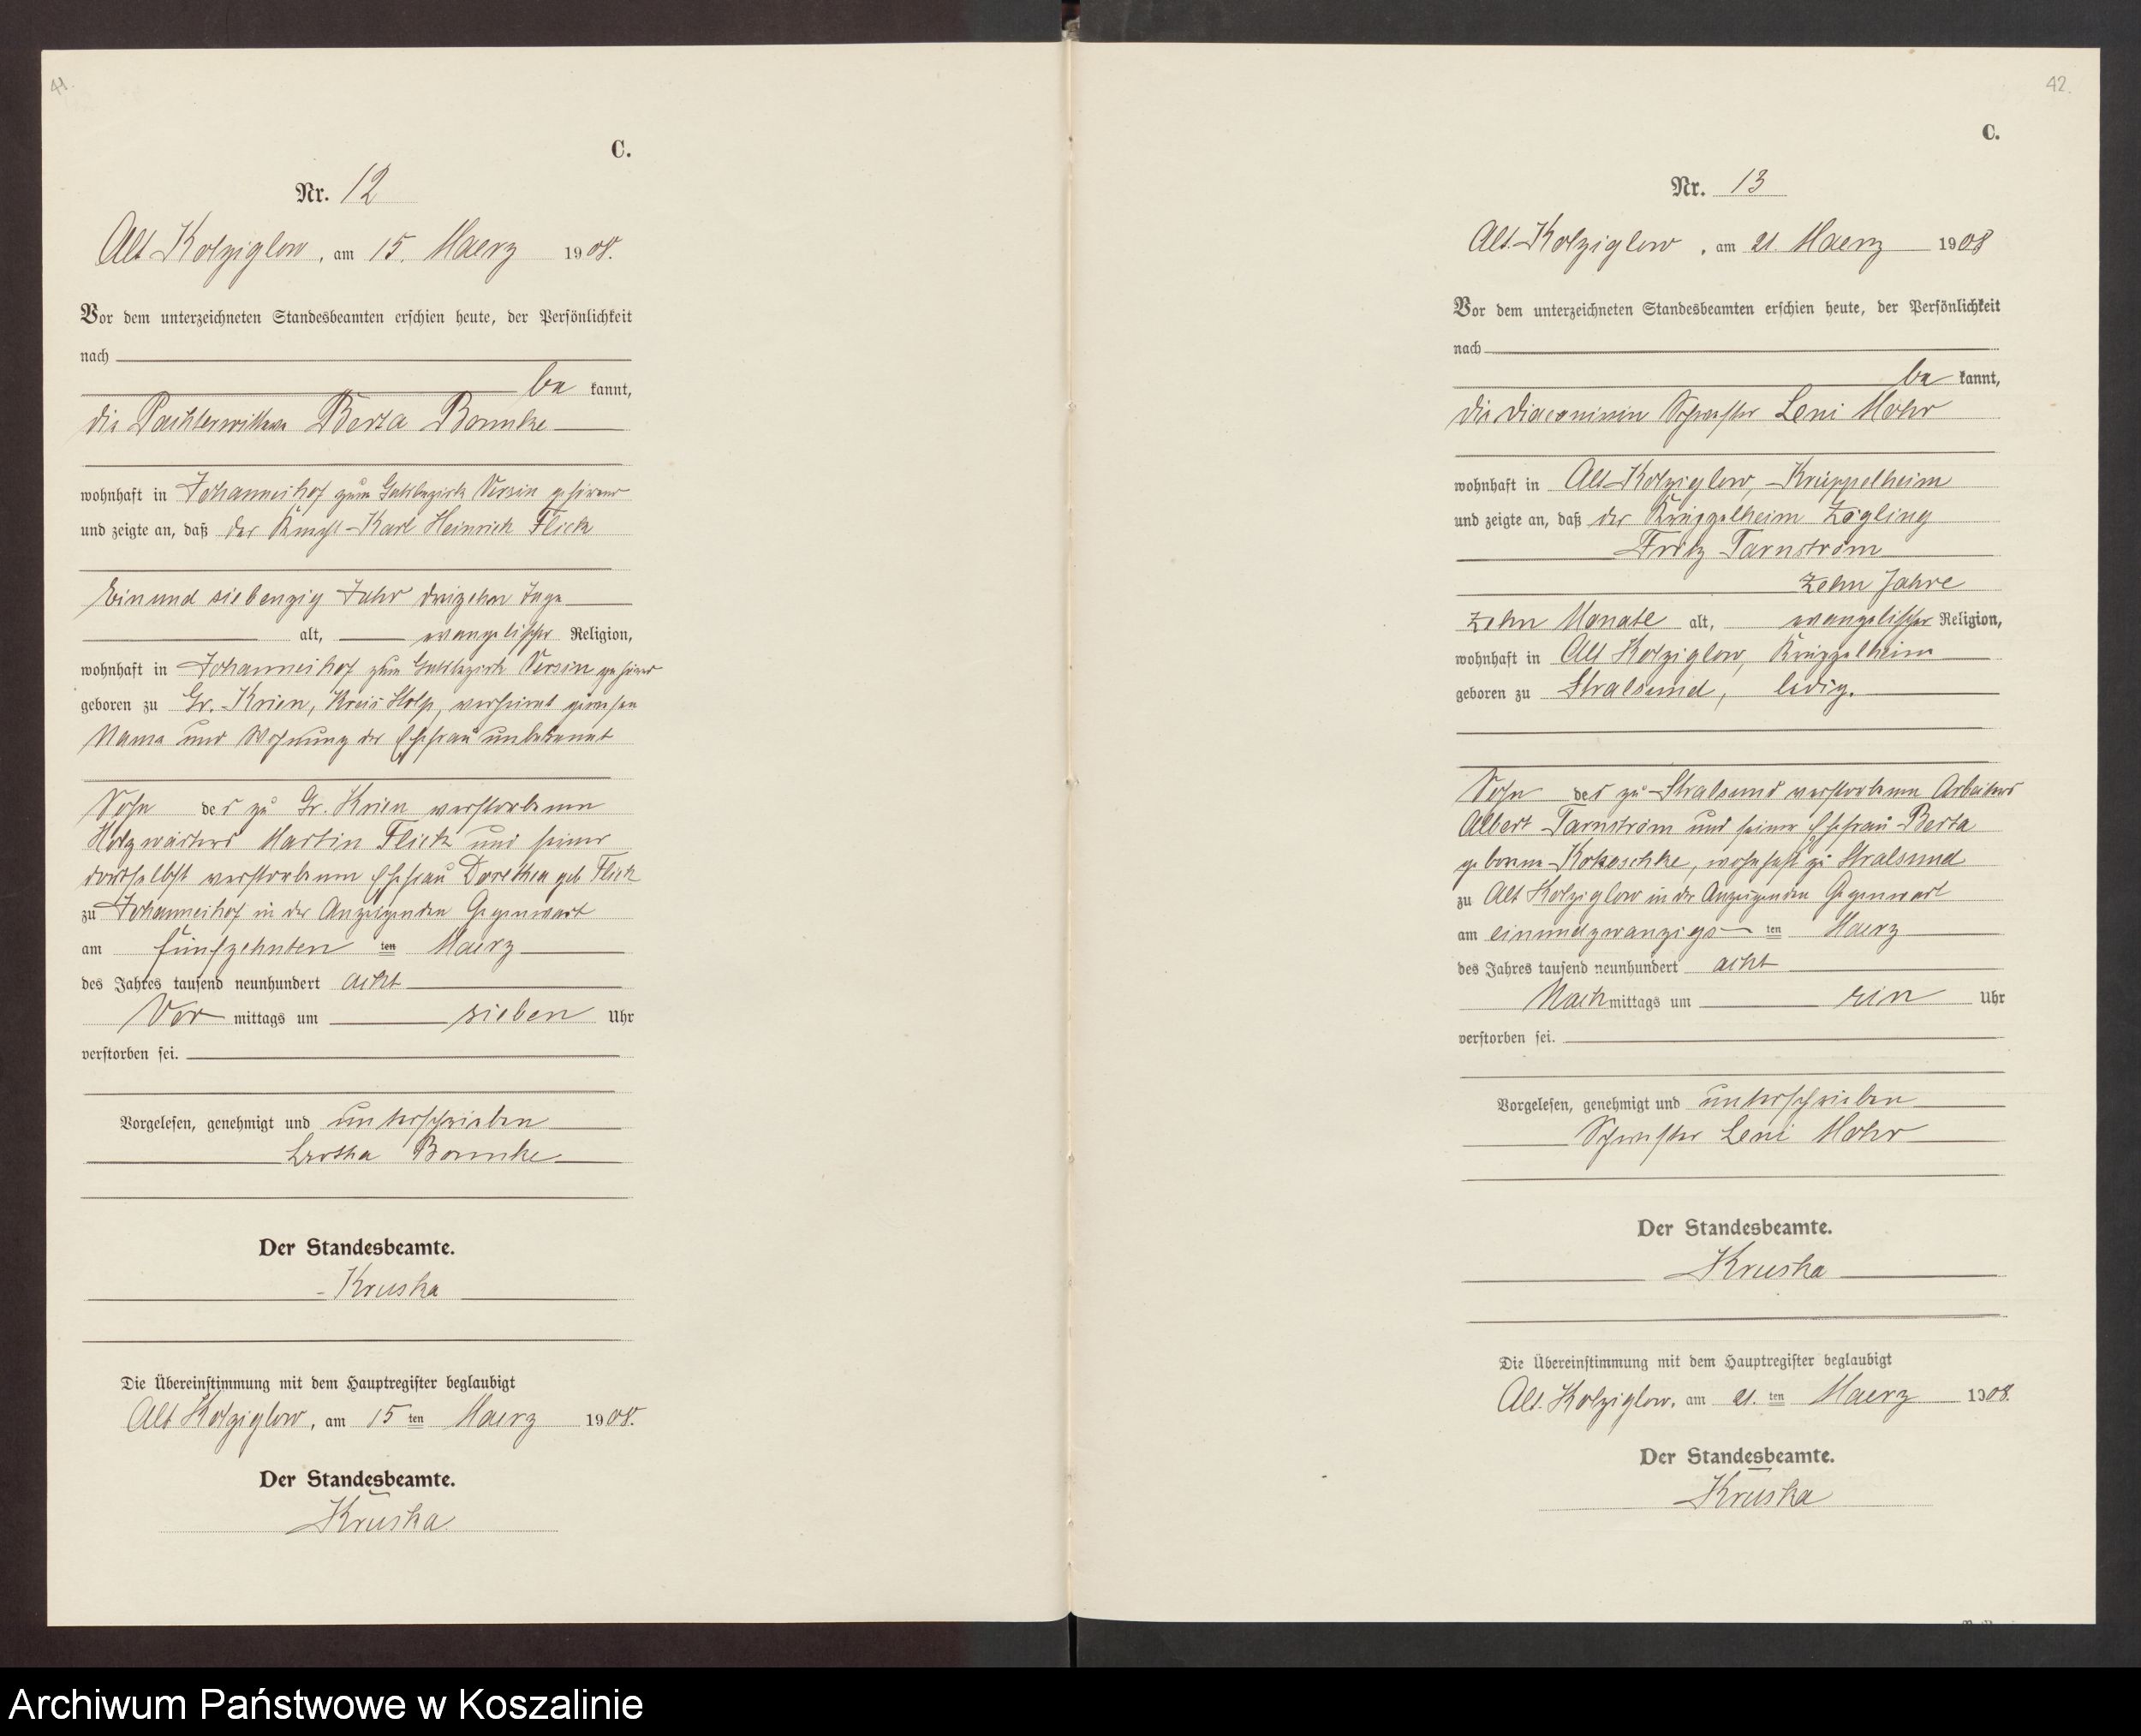 41.
C.
Nr. 12
Alt Kolziglow, am 15. Maerz 1908.
Vor dem unterzeichneten Standesbeamten erschien heute, der Persönlichkeit
nach
be kannt,
die Pächterwittwe Berta Bonnke
wohnhaft in Johanneshof zum Gutsbezirk Versin gehörend
und zeigte an, daß der Knecht Karl Heinrich Flick
Einund siebenzig Jahr dreizehn Tage
alt, evangelischer Religion,
wohnhaft in Johanneshof zum Gutsbezirk Versin gehörend
geboren zu Gr. Krien, Kreis Stolp, verheirat gewesen
Name und Wohnung der Ehefrau unbekannt
Sohn des zu Gr. Krien verstorbenen
Holzwärters Martin Flick und seiner
daselbst verstorbenen Ehefrau Dorethea geb Flick
zu Johanneshof in der Anzeigenden Gegenwart
am fünfzehnten ten Maerz
des Jahres tausend neunhundert acht
Vor mittags um sieben Uhr
verstorben sei.
Vorgelesen, genehmigt und unterschrieben
Bertha Bonnke
Der Standesbeamte.
Kruska
Die Übereinstimmung mit dem Hauptregister beglaubigt
Alt Kolziglow, am 15 ten Maerz 1908.
Der Standesbeamte.
Kruska
42.
C.
Nr. 13
Alt-Kolziglow, am 21. Maerz 1908
Vor dem unterzeichneten Standesbeamten erschien heute, der Persönlichkeit
nach
be kannt,
die Diaconissin Schwester Leni Mohr
wohnhaft in Alt Kolziglow, Krüppelheim
und zeigte an, daß der Krüppelheim Zögling
Fritz Tarnström
zehn Jahre
zehn Monate alt, evangelischer Religion,
wohnhaft in Alt Kolziglow, Krüppelheim
geboren zu Stralsund, ledig.
Sohn des zu Stralsund verstorbenen Arbeiters
Albert Tarnström und seiner Ehefrau Berta
geborene Kokoschke, wohnhaft zu Stralsund
zu Alt Kolziglow in der Anzeigenden Gegenwart
am einundzwanzigs ten Maerz
des Jahres tausend neunhundert acht
Nach mittags um ein Uhr
verstorben sei.
Vorgelesen, genehmigt und unterschrieben
Schwester Leni Mohr
Der Standesbeamte.
Kruska
Die Übereinstimmung mit dem Hauptregister beglaubigt
Alt. Kolziglow, am 21. ten Maerz 1908.
Der Standesbeamte.
Kruska
Archiwum Państwowe w Koszalinie